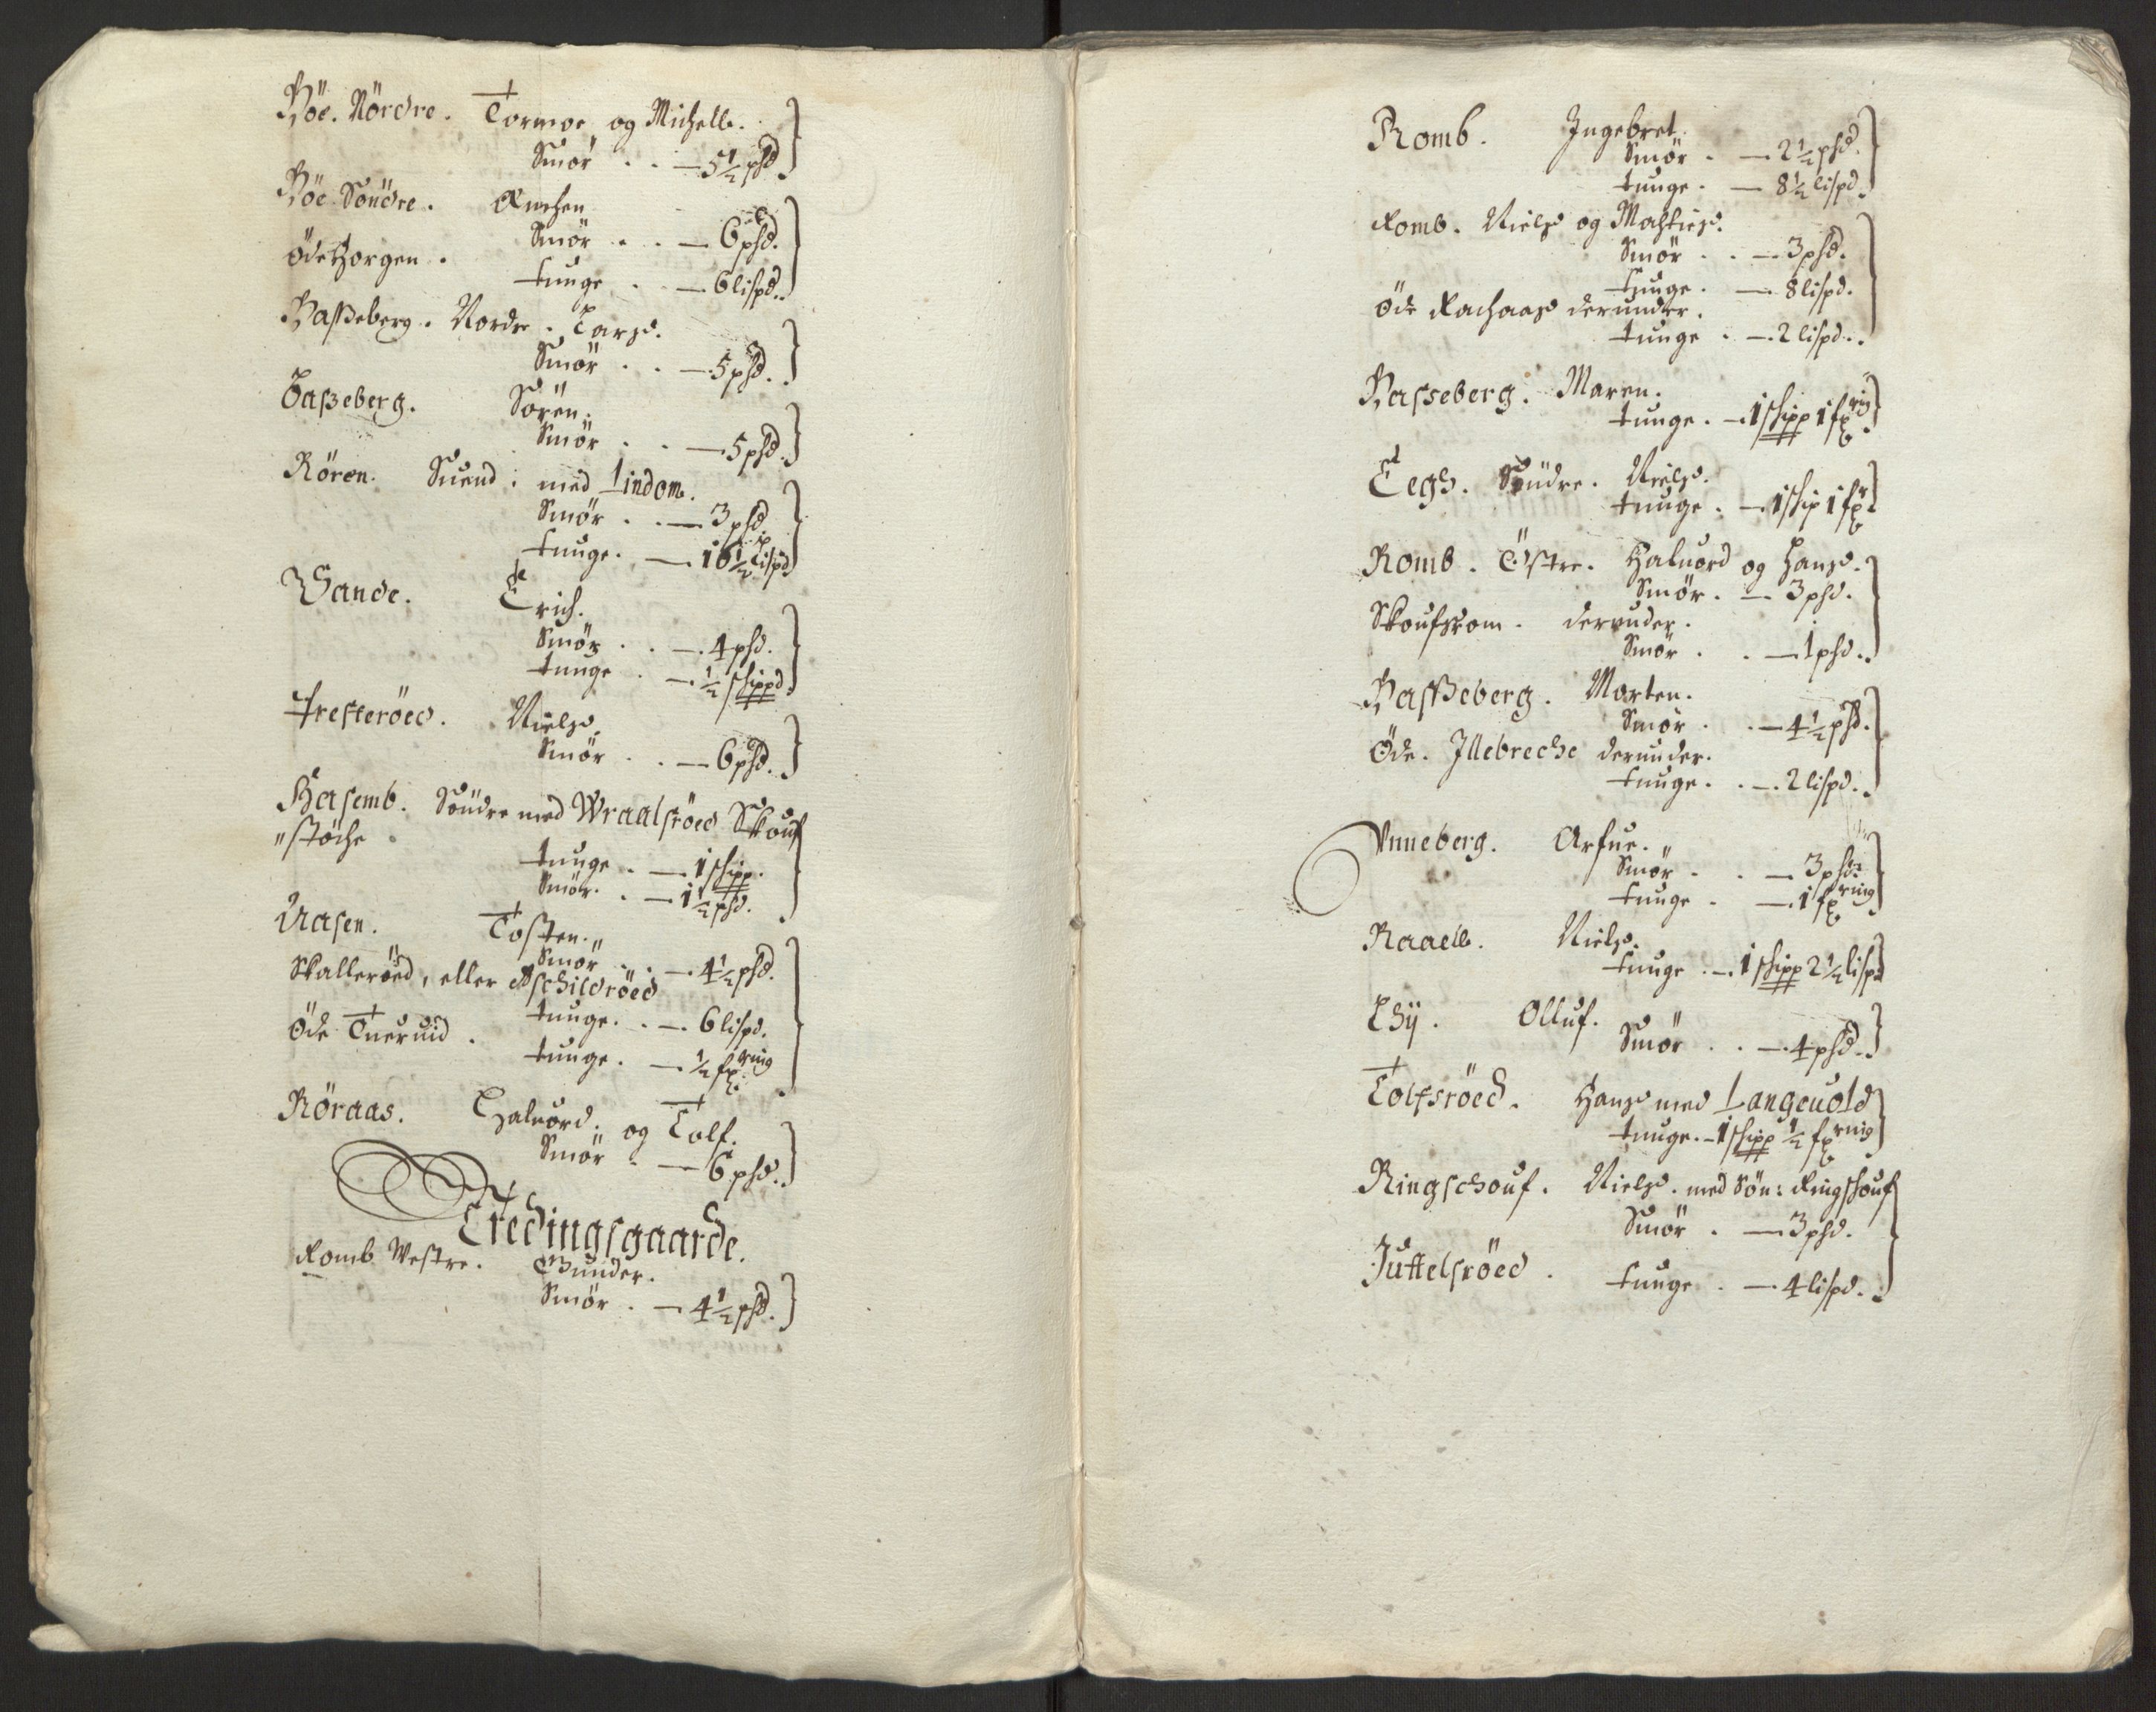 Böe. Nördre. Tormoe og Michell.
Smör . . — 5½ phd.
Böe Söndre. Anchen
Smör . . — 6 phd.
Öde Horgen .
tunge . — 6 lispd.
Basseberg. Nordre. Larss.
Smör . . — 5 phd.
Basseberg. Sören.
Smör . . — 5 phd.
Rören. Suend: med Lindom.
Smör . . — 3 phd.
tunge. — 16½ lispd
Wande. Erich.
Smör . . — 4 phd.
tunge . — ½ schippd.
Tresteröed. Nielss.
Smör . . — 6 phd.
Basemb. Söndre med Wraalsröed Skouf
"stöche .
tunge . — 1 schipp.
Smör. . — 1½ phd.
Aasen. Tosten.
Smör . . — 4½ phd.
Skalleröed, eller Aschildröed
tunge. . — 6 lispd.
Öde Tueruid .
tunge. — ½ fxring
Röraas. Haluord. og Tolf.
Smör . — 6 phd.
Tredingsgaarde.
Romb Westre. Gunder.
Smör . — 4½ phd.
Romb. Ingebret.
Smör . — 2½ phd.
tunge. — 8½ lispd.
Romb. Nielss og Mathiess.
Smör . . — 3 phd.
tunge. — 8 lispd.
Öde Rachaas derunder.
tunge . — 2 lispd.
Basseberg. Maren.
tunge. — 1 schipp 1 fxring
Eegh. Söndre. Nielss.
tunge. — 1 schip 1 fxr
Romb. Östre. Haluord og Hanss.
Smör. — 3 phd.
Skoufsrom. derunder.
Smör . . — 1 phd.
Basseberg. Morten.
Smör . . — 4½ phd.
Öde. Illebreche derunder.
tunge. . — 2 lispd.
Vnneberg. Arfue.
Smör . . — 3 phd.
tunge . — 1 fxring
Raaell. Nielss.
tunge . — 1 schipp 2½ lispd
Lhÿ. Olluf.
Smör . . — 4 phd.
Tolfsröed. Hanss med Langeuold
tunge. — 1 schipp ½ fxring
Ringschouf. Nielss. med Sön: Ringshouf
Smör . — 3 phd.
Juttelsröed .
tunge . — 4 lispd.